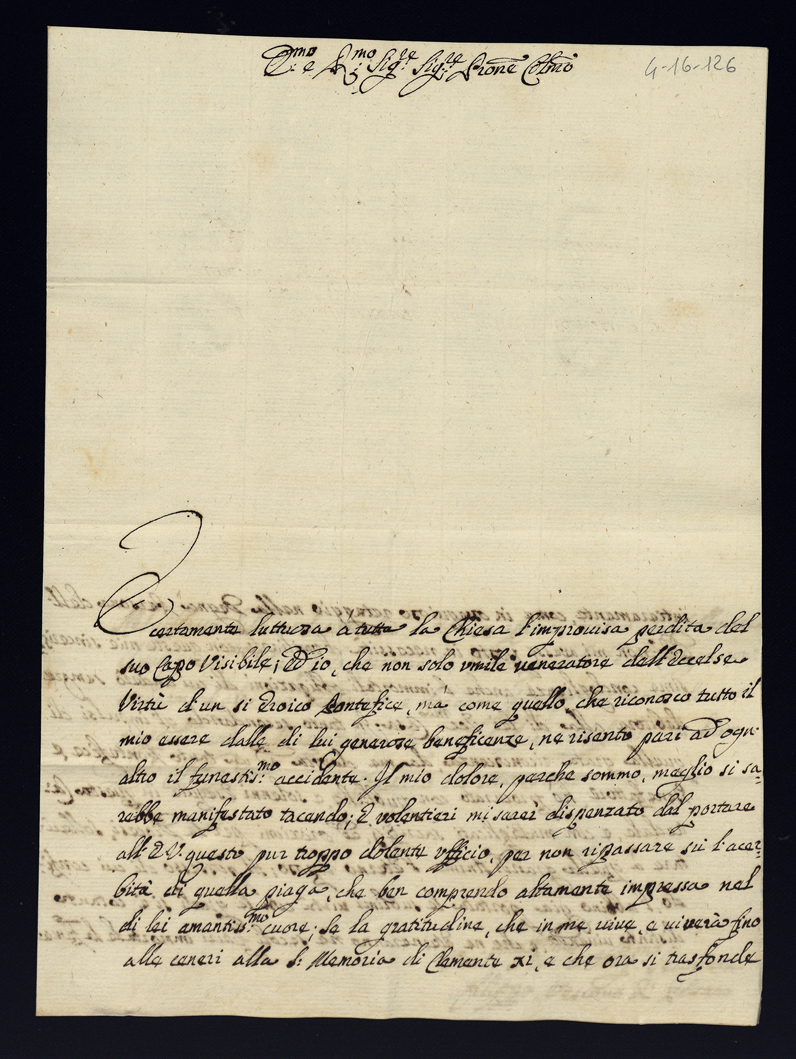 Ill.mo e R.mo Sig.re Sig.re Prone Colmo
4-16-126
È certamente luttuosa a tutta la Chiesa l'improuisa perdita del
suo Capo Visibile; Ed io, che non solo vmile veneratore dell'Eccelse
Virtù d'un si Eroico Pontefice, mà come quello, che riconosco tutto il
mio essere dalle di lui generose beneficenze, ne risento pari ad ogn'
altro il funestis.mo accidente. Il mio dolore, perche sommo, meglio si sa-
rebbe manifestato tacendo; E volentieri mi sarei dispenzato dal portare
all'E.V. questo pur troppo dolente vfficio, per non ripassare sù l'acer-
bità di quella piaga, che ben comprendo altamente impressa nel
di lei amantiss.mo cuore; Se la gratitudine, che in me viue, e viuerà fino
alle ceneri alla S. Memoria di Clemente XI, e che ora si trasfonde